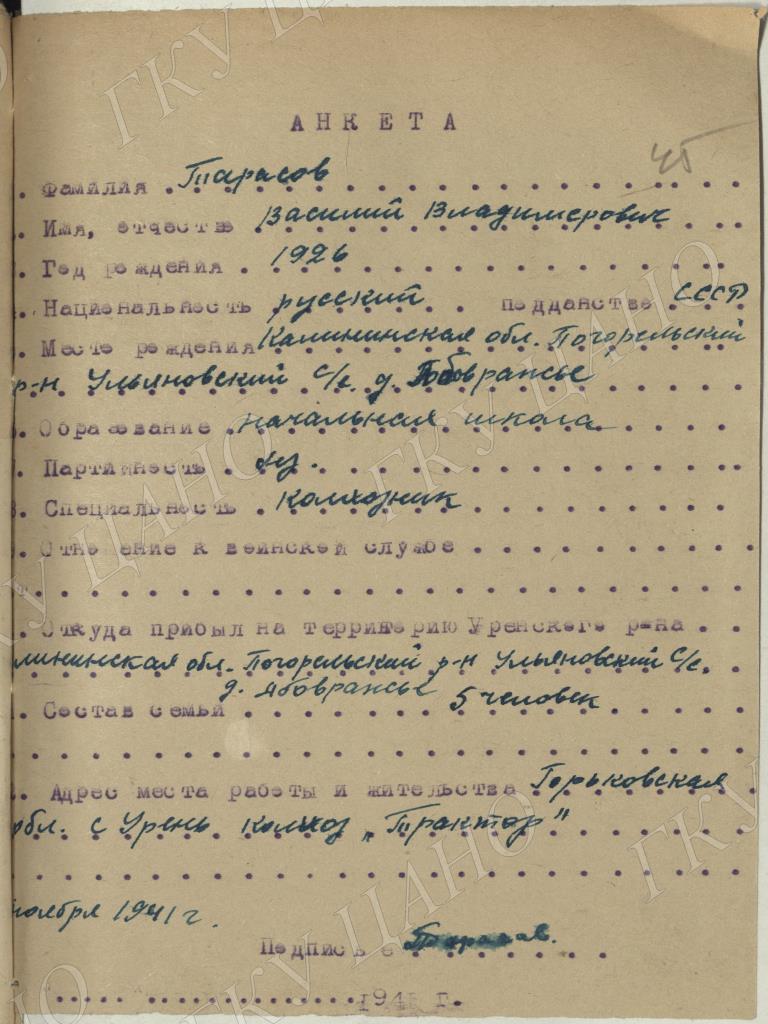 АНКЕТА
45
Фамилия Тарасов
Имя, отчество Василий Владимерович
Год рождения 1926
Национальность русский подданство СССР
Место рождения Калининская обл. Погорельский
р-н Ульяновский с/с. д.
Образование начальная школа
Партийность б/п.
8. Специальность колхозник
Отношение к воинской службе
Откуда прибыл на территорию Уренского р-на
лининская обл. Погорельский р-н Ульяновский с/с.
д. Ябовражье
Состав семьи 5 человек
Адрес места работы и жительства Горьковская
обл. с Урень колхоз „Трактор"
ноября 1941 г.
Подпись Тарасов.
194 г.
ГКУ ЦАНО